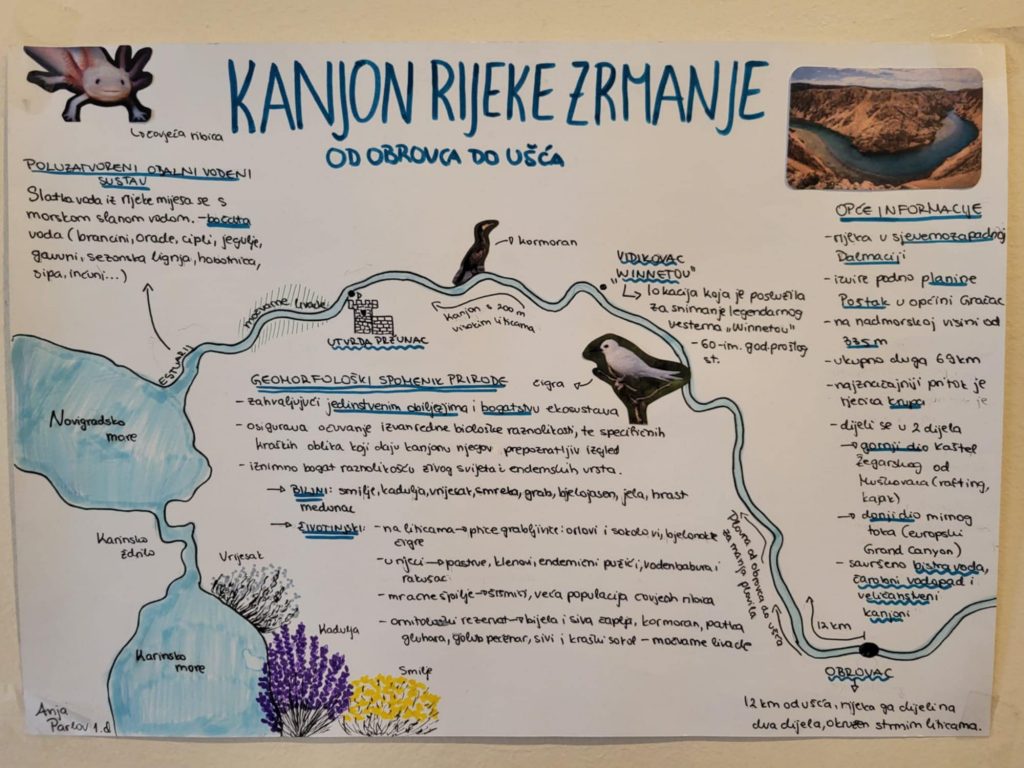 KANJON RIJEKE ZRMANJE
OD OBROVCA DO UŠĆA
čovječja ribica
POLUZATVORENI OBALNI VODENI
SUSTAV
Slatka voda iz rijeke miješa se s
morskom slanom vodom. - boćata
voda (brancini, orade, cipli, jegulje,
gavuni, sezonska lignja, hobotnica,
sipa, inćuni...)
ESTUARIJ
močvarne livade
UTVRDA PRŽUNAC
kormoran
Kanjon s 200m
visokim liticama
VIDIKOVAC
"WINNETOU"
lokacija koja je poslužila
za snimanje legendarnog
vesterna "Winnetou"
- 60-im. god. prošlog
st.
čigra
OPĆE INFORMACIJE
- rijeka u sjeverozapadnoj
Dalmaciji
- izvire podno planine
Poštak u općini Gračac
- na nadmorskoj visini od
335m
- ukupno duga 69km
- najznačajniji pritok je
rječica Krupa
- dijeli se u 2 dijela
→ gornji dio kaštel
Žegarskog od
Muškovaca (rafting,
kajak)
→ donji dio mirnog
toka (europski
Grand Canyon)
- savršeno bistra voda,
čarobni vodopad i
veličanstveni
kanjoni
GEOMORFOLOŠKI SPOMENIK PRIRODE
- zahvaljujući jedinstvenim obilježjima i bogatstvu ekosustava
- osigurava očuvanje izvanredne biološke raznolikosti, te specifičnih
kraških oblika koji daju kanjonu njegov prepoznatljiv izgled
- iznimno bogat raznolikošću živog svijeta i endemskih vrsta.
→ BILJNI: smilje, kadulja, vrijesak, smreka, grab, bjelojasen, jela, hrast
medunac
→ ŽIVOTINJSKI: - na liticama → ptice grabljivice: orlovi i sokolovi, bjelonokte
čigre
- u rijeci → pastrve, klenovi, endemični pužići, vodenbabura i
rakušac
- mračne špilje → šišmiši, veća populacija čovječjih ribica
- ornitološki rezervat → bijela i siva čaplja, kormoran, patka
gluhara, golub pećinar, sivi i kraški sokol - močvarne livade
Novigradsko
more
Karinsko
ždrilo
Vrijesak
Karinsko
more
Kadulja
Smilje
Plovna od obrovca do ušća
za manja plovila
12km
OBROVAC
12km od ušća, rijeka ga dijeli na
dva dijela, okružen strmim liticama.
Anja
Parlov 1.d